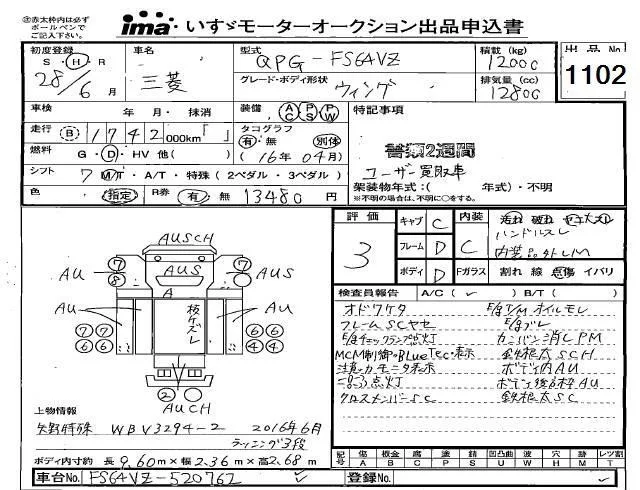 ㊟赤太枠内は必ず
ボールペンで
ご記入下さい。
ima いすゞモーターオークション出品申込書
初度登録
S・H・R
28/6月
車名
三菱
型式
QPG-FS64VZ
グレード・ボディ形状
ウイング
積載 (kg)
12000
排気量 (cc)
12800
出品 No
1102
車検 年 月・抹消
装備 AC PS PW
特記事項
走行 B 1742 000km「 」
タコグラフ
有・無 別体
(16年04月)
書類2週間
ユーザー買取車
燃料 G・D・HV 他( )
シフト 7 MT・A/T・特殊(2ペダル・3ペダル)
架装物年式:( 年式)・不明
※不明の場合は、不明に○をする。
色 (指定) R券 有 無 13480 円
評価
3
キャブ C
フレーム D
ボディ D
内装
C
Fガラス
汚れ 破れ ヤニ大スレ
ハンドルスレ
内装品外しM
割れ 線 点傷 イバリ
AUSCH
AUS
A
AU
AU
AU
AU
板ケズレ
7
8
7
7 7
6 6
6 6
4 4
2
AUCH
検査員報告 A/C( ✓ ) B/T( )
オドワケタ
E/g T/M オイルモレ
フレームSCヤセ
E/gブレ
E/gチェックランプ点灯
カンバン消しPM
MCM制御・BlueTec・表示
鉄根太SCH
注意・カモニタ表示
ボディ内AU
点灯
ボディ後枠AU
クロスメンバーSC
鉄根太SC
上物情報
矢野特殊 WBV3294-2 2016年6月
ラッシング3段
ボディ内寸約 長9.60m×幅2.36m×高2.68m
記号 傷 A 板金 B 腐 C 塗 P 錆 S 凹凸曲 U 波 W 穴 H 跡 M レツ割 T
車台No. FS64VZ-520762 ✓
登録No. ✓